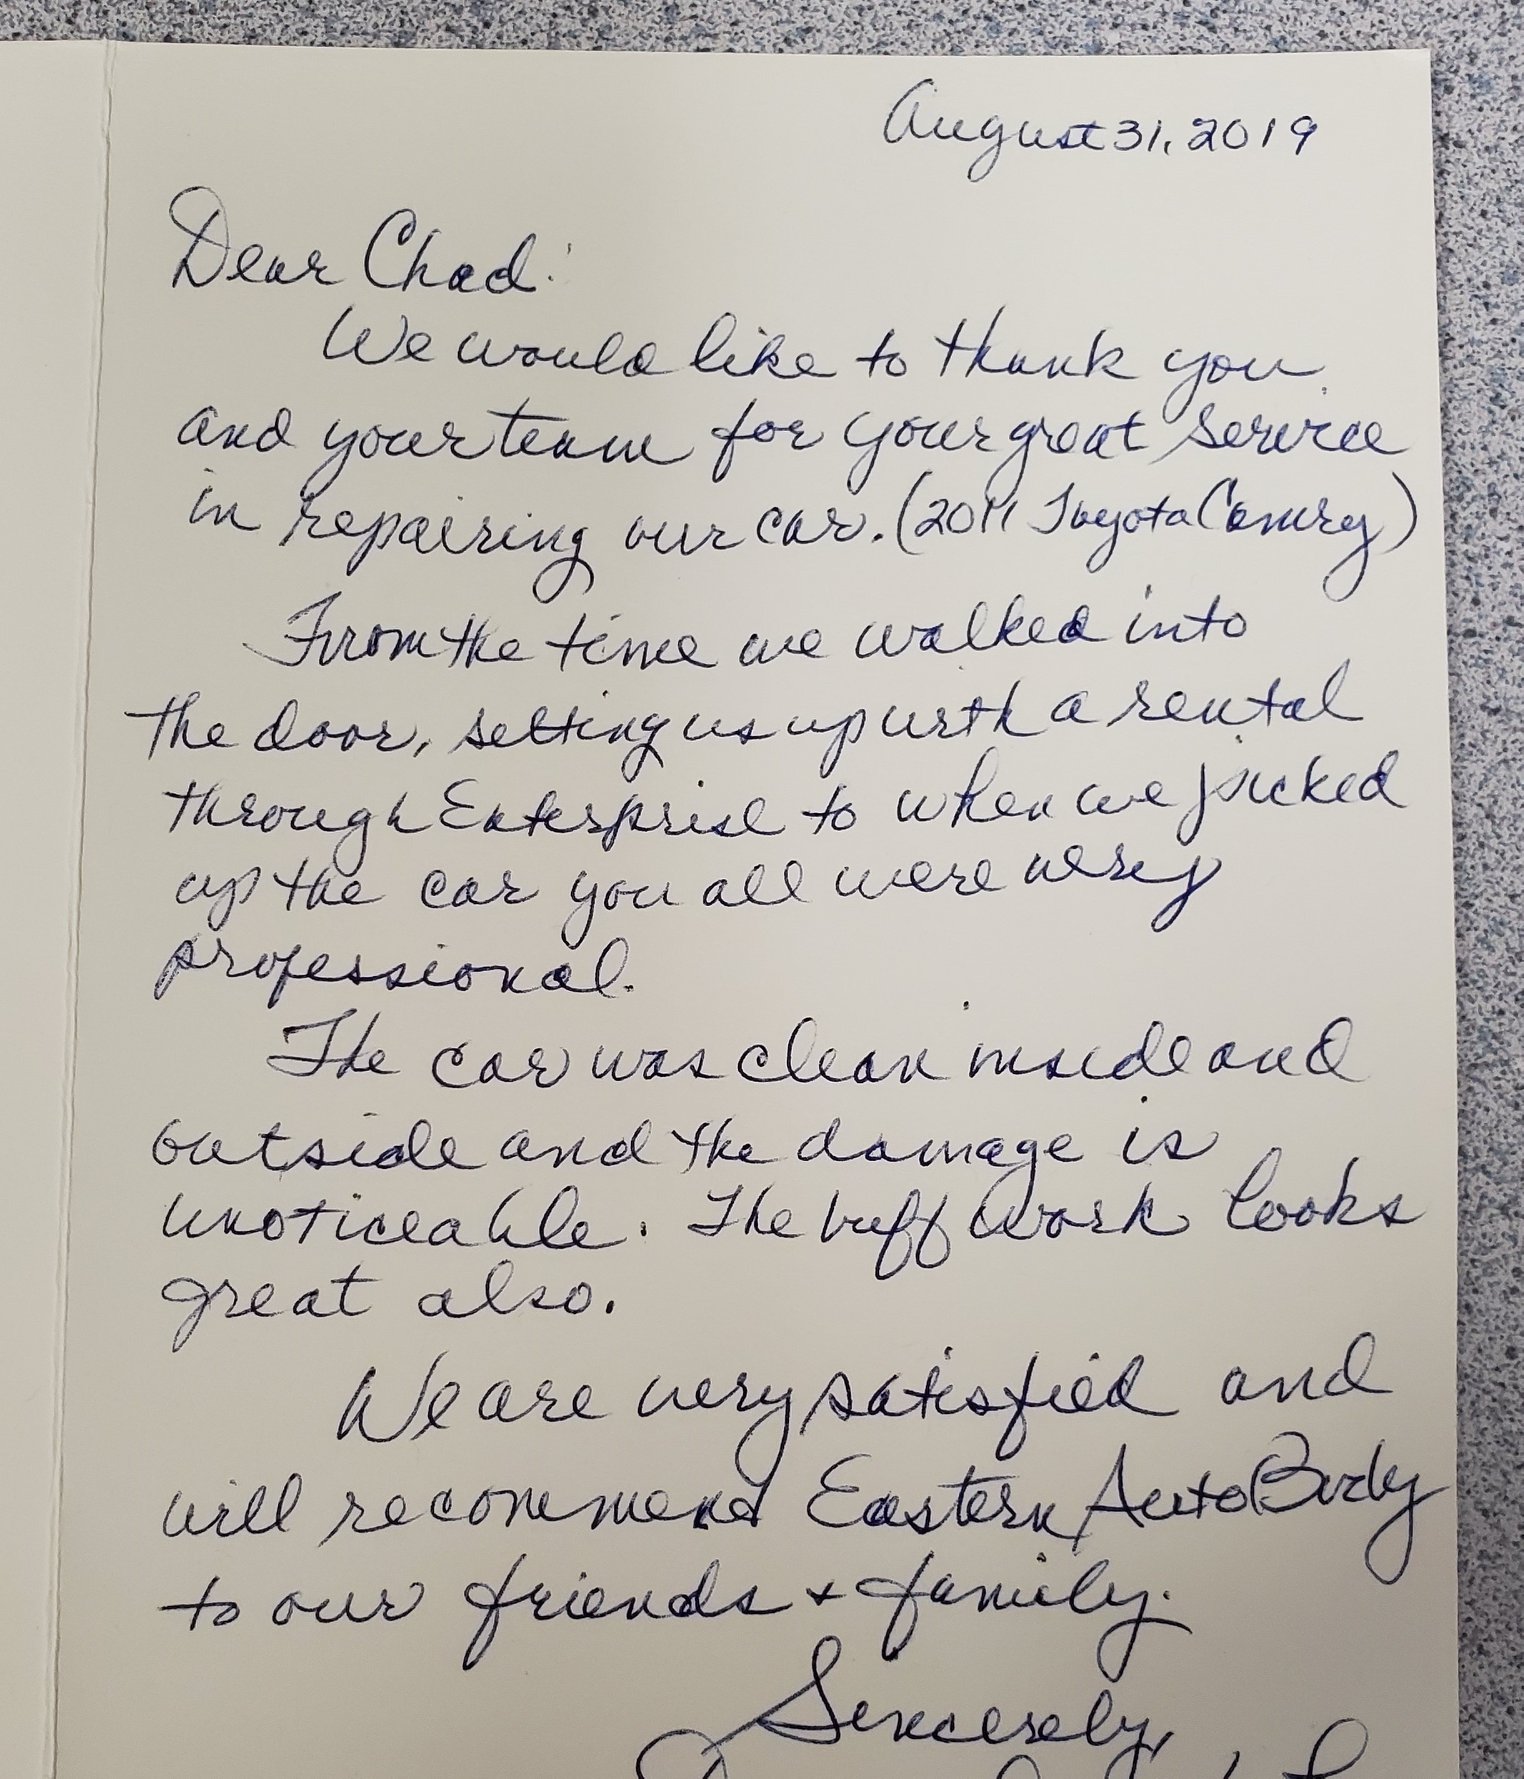 August 31, 2019
Dear Chad:
We would like to thank you
and your team for your great service
in repairing our car. (2011 Toyota Camry)
From the time we walked into
the door, setting us up with a rental
through Enterprise to when we picked
up the car you all were very
professional.
The car was clean inside and
outside and the damage is
unoticeable. The buff work looks
great also.
We are very satisfied and
will recommend Eastern Auto Body
to our friends + family.
Sincerely,